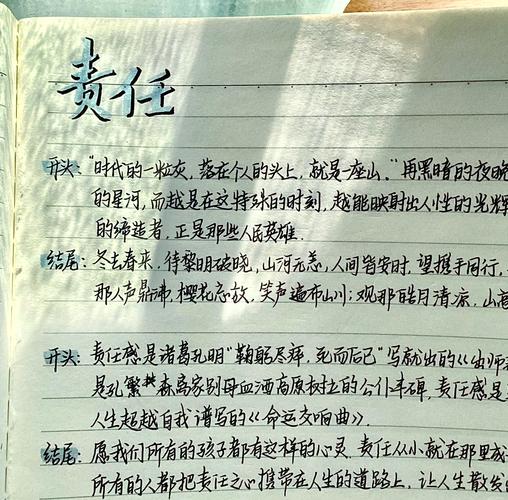 责任
开头："时代的一粒灰，落在个人的头上，就是一座山。"再黑暗的夜晚
的星河，而越是在这特殊的时刻，越能映射出人性的光辉
的缔造者，正是那些人民英雄.
结尾：冬去春来，待黎明破晓，山河无恙，人间皆安时，望携手同行，
那人声鼎沸，樱花恣放，笑声遍布山川；观那皓月清凉，山
开头：责任感是诸葛孔明"鞠躬尽瘁，死而后已"写就出的《出师
是孔繁森离家别母血洒高原树立的公仆丰碑，责任感是
人生超越自我谱写的《命运交响曲》.
结尾：愿我们所有的孩子都有这样的心灵，责任从小就在那里
所有的人都把责任之心携带在人生的道路上，让人生散发